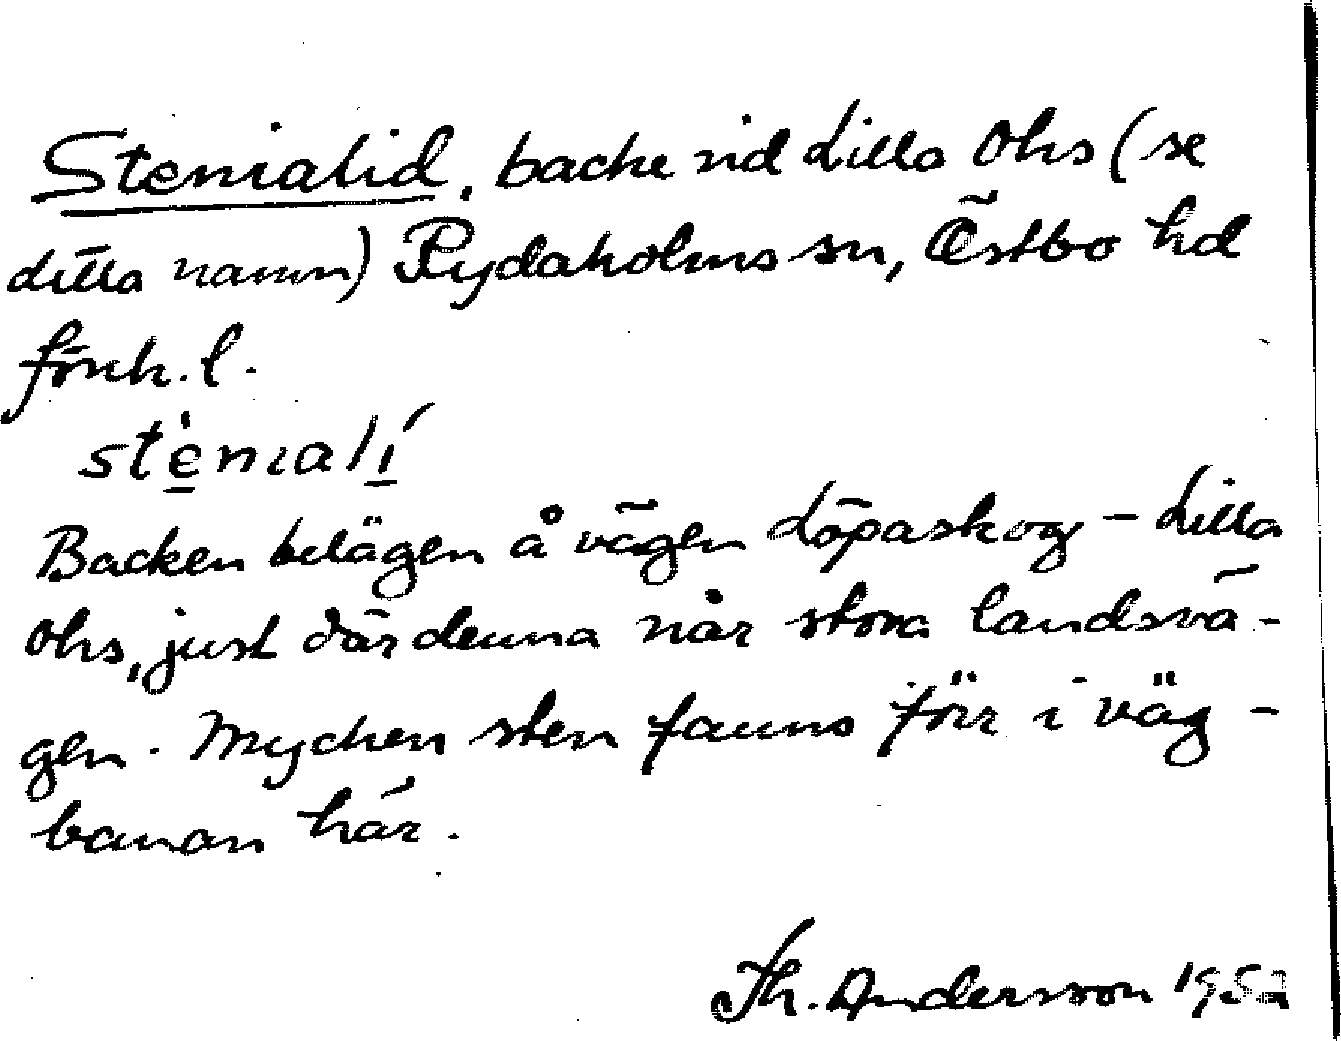 Stenialid, backe vid Lilla Ohs (se
detta namn) Rydaholms sn, Östbo hd
Jönk. l.
stèniali̍
Backen belägen å vägen Löpaskog - Lilla
Ohs, just där denna når stora landsvä-
gen. Mycken sten fanns förr i väg-
banan här.
Th. Andersson 1952